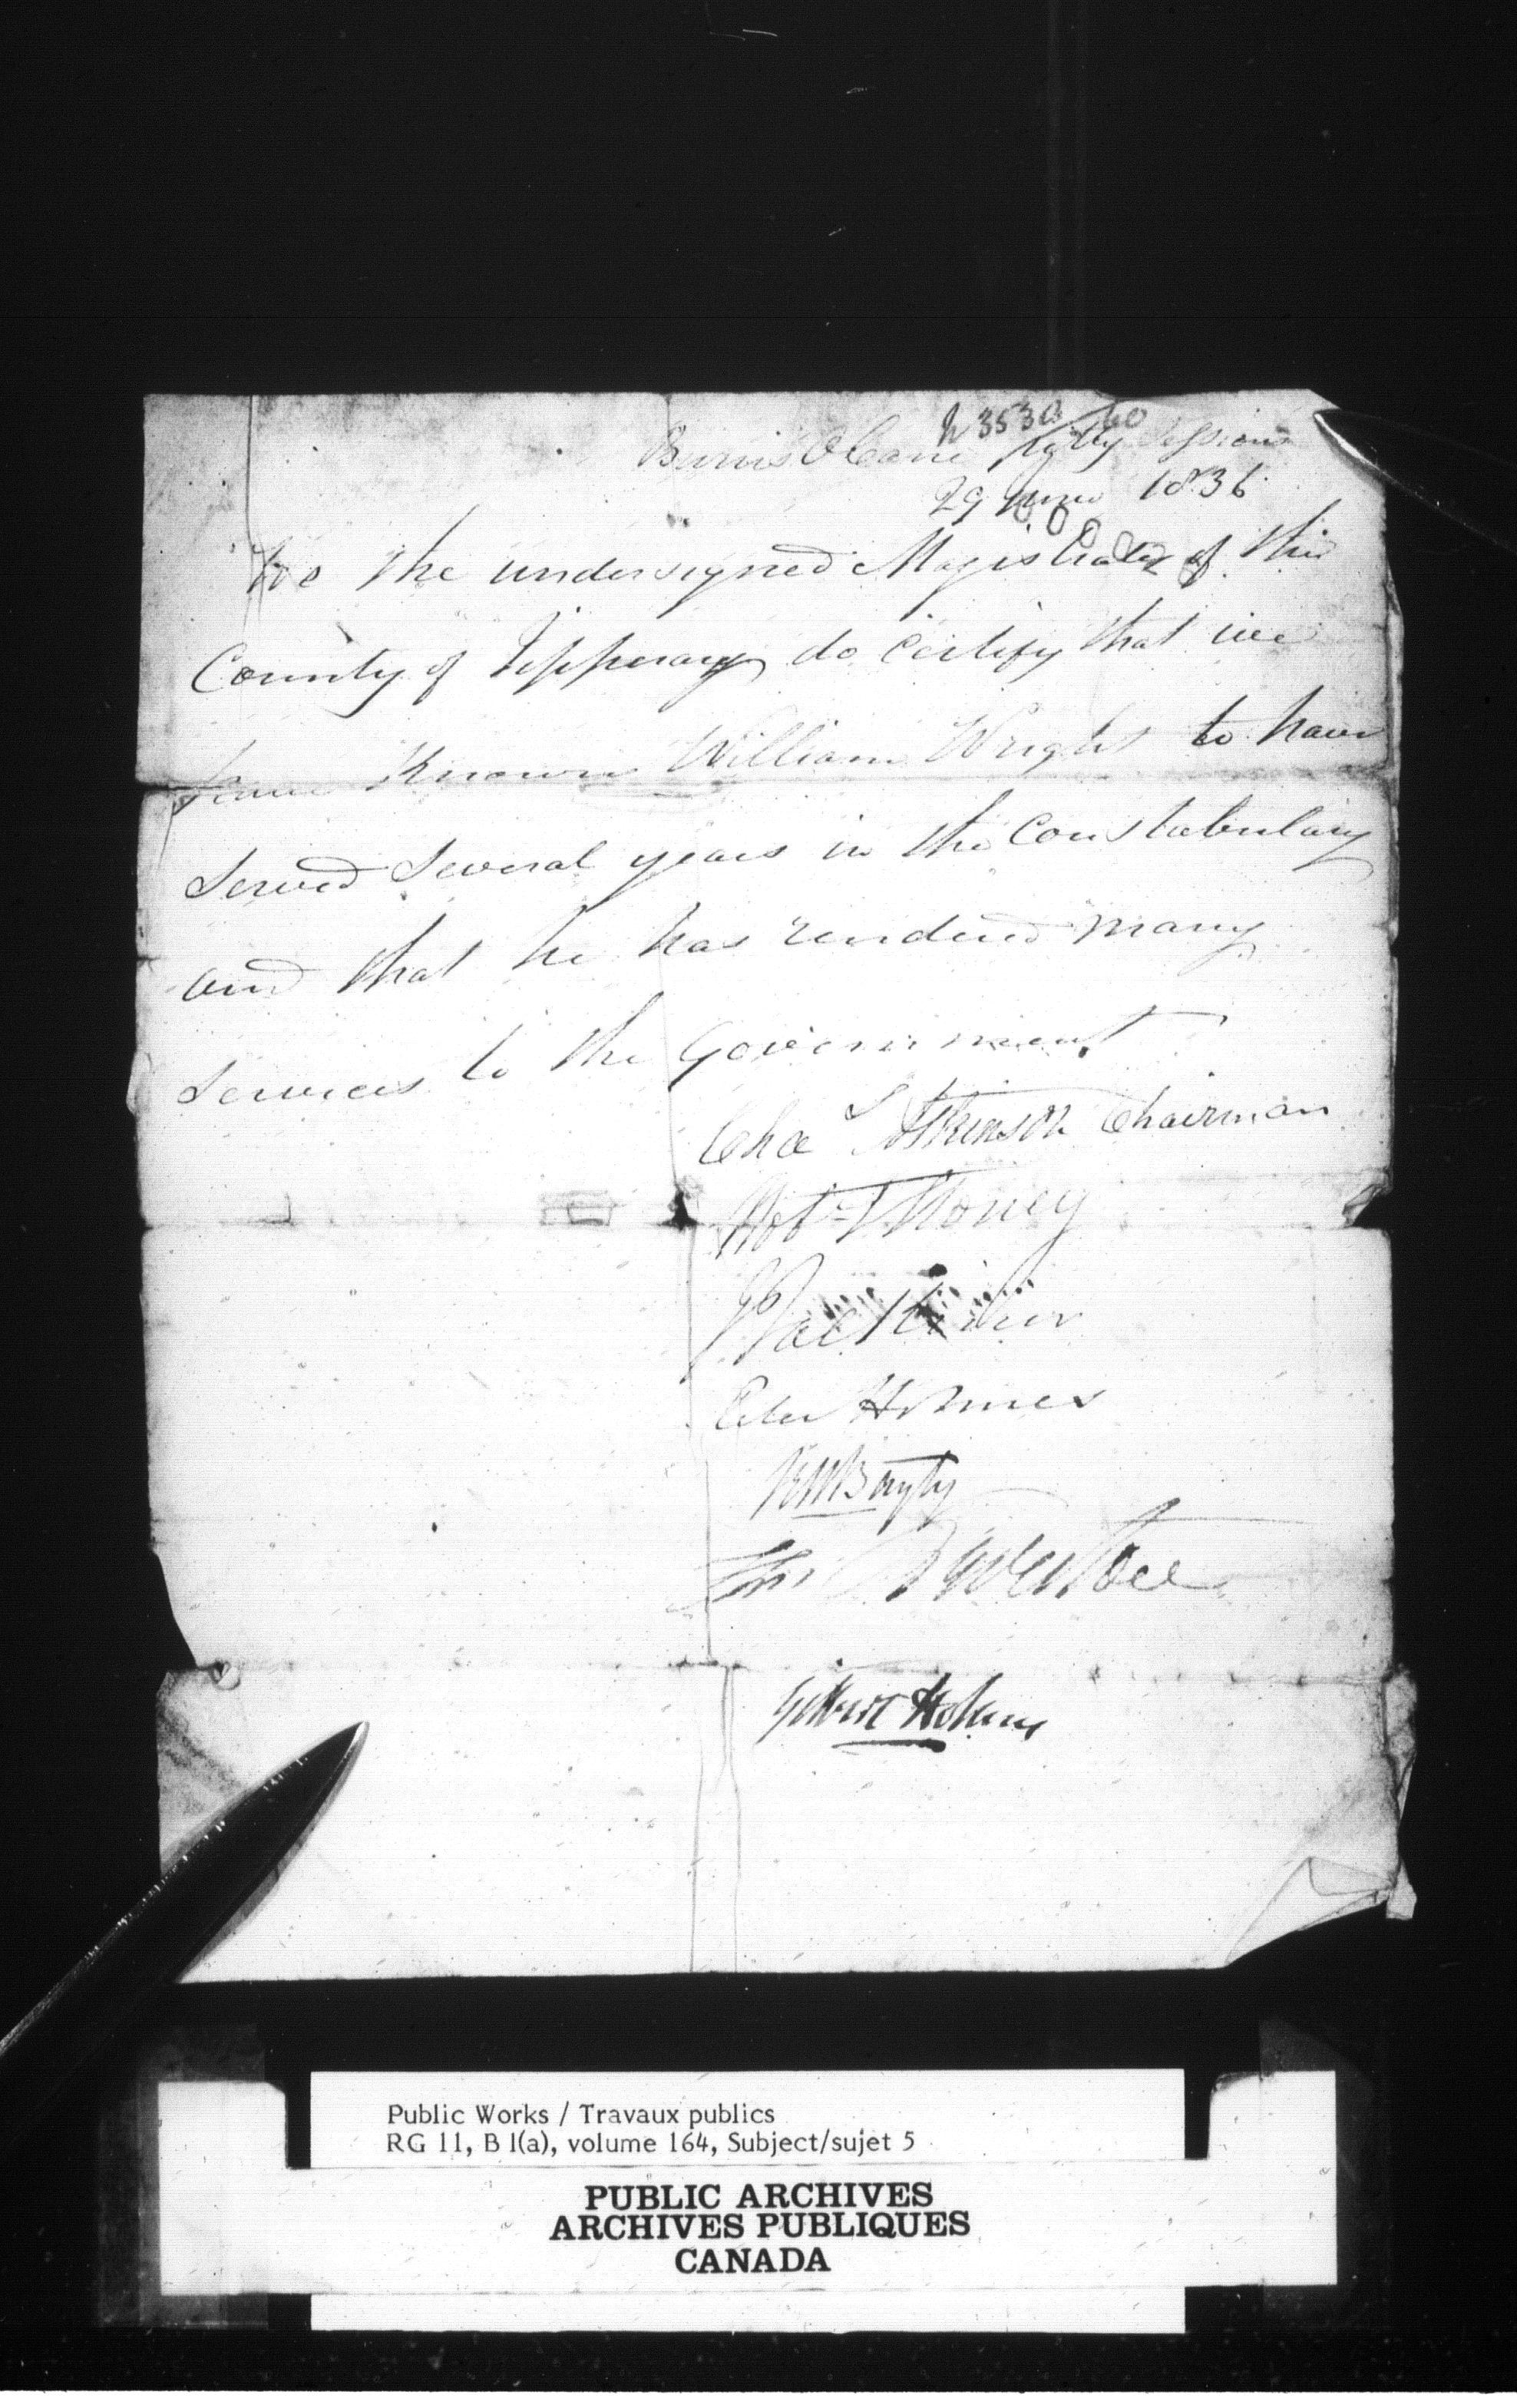 h 3530 60
Burris O Cane Petty Sessions
29 June 1836
We the undersigned Magistrates of the
County of Tipperary do Certify that we
have Known William Wright to have
Served Several years in the Constabulary
and that he has rendered many
Services to the Government
Cha S Atkinson Chairman
Robt Stoney
Peter Holmes
Gilbert Holmes
Public Works / Travaux publics
RG 11, B 1(a), volume 164, Subject/sujet 5
PUBLIC ARCHIVES
ARCHIVES PUBLIQUES
CANADA